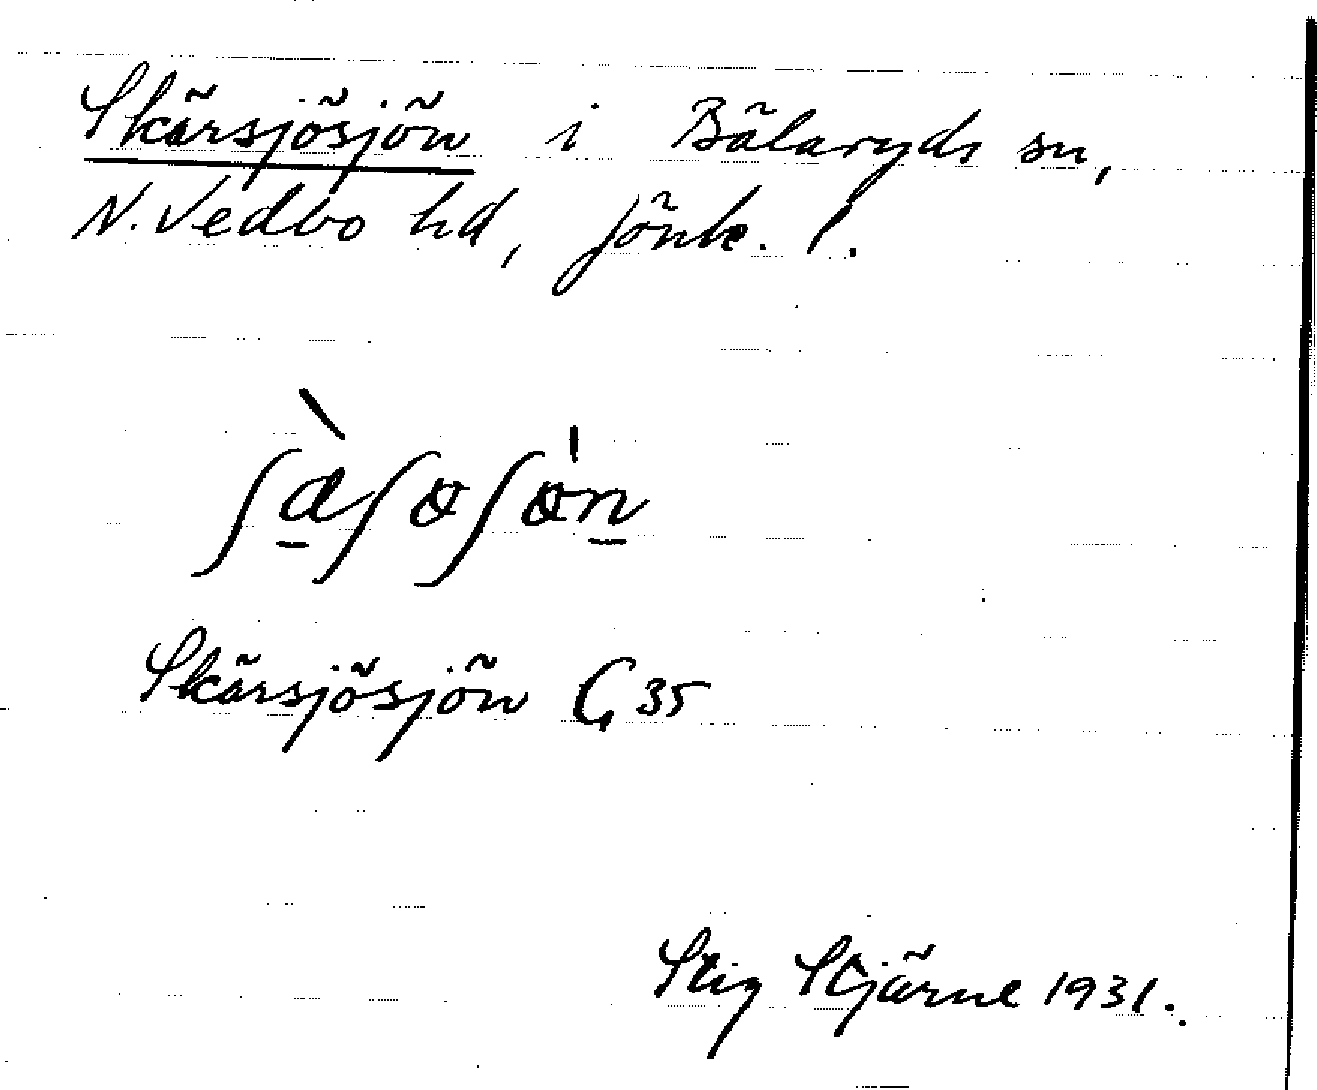 Skärsjösjön i Bälaryds sn,
N. Vedbo hd, Jönk. l.
ʃa̠ʃɵʃɵn̠
Skärsjösjön G 35
Stig Stjärne 1931.